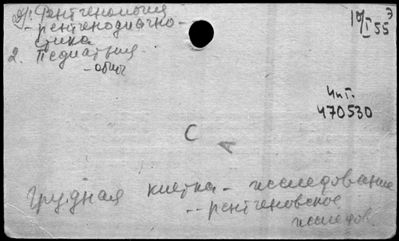 1. Рентгенология
- рентгенодиагно-
стика
2. Педиатрия
- общ.
19/I 55 э
Чит.
470530
С
А
Грудная клетка - исследование
-- рентгеновское
исследов.